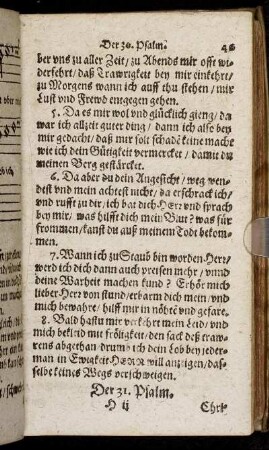 Der 30. Psalm.
ber vns zu aller Zeit/ zu Abends mir offt wi-
derfehrt/ daß Trawrigkeit bey mir einkehrt/
zu Morgens wann ich auff thu stehen/ mir
Lust vnd Frewd entgegen gehen.
5. Da es mir wol vnd glücklich gieng/ da
war ich allzeit guter ding/ dann ich also bey
mir gedacht/ daß mir solt schadē keine macht
wie ich dein Gütigkeit vermercket/ damit du
meinen Berg gestärcket.
6. Da aber du dein Angesicht/ weg wen-
dest vnd mein achtest nicht/ da erschrack ich/
vnd rufft zu dir/ ich bat dich HErr vnd sprach
bey mir/ was hilfft dich mein Blut? was für
frommen/ kanst du auß meinem Todt bekom-
men.
7. Wann ich zu Staub bin worden Herr/
werd ich dich dann auch preisen mehr/ vnnd
deine Warheit machen kund? Erhör mich
lieber Herr von stund/ erbarm dich mein/ vnd
mich bewahr/ hilff mir in nöhtē vnd gefarr.
8. Bald hastu mir verkehrt mein Leid/ vnd
mich bekleid mit fröligkeit/ den sack deß traw-
rens abgethan drumb ich dein Lob bey jeder-
man in Ewigkeit HERR will anzeigen/ das-
selbe keines Wegs verschweigen.
Der 31. Psalm.
H ij
Chri-